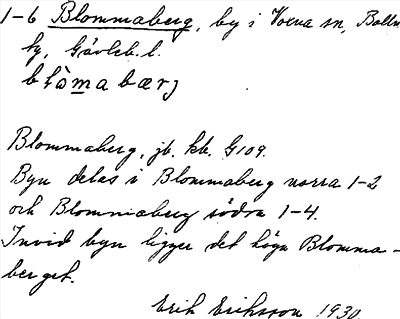 1-6 Blommaberg, by i Voxna sn, Bolln
hg, Gävleb. l.
Blommaberg, jb. kb. G109.
Byn delas i Blommaberg norra 1-2
och Blommaberg södra 1-4.
Invid byn ligger det höga Blomma-
berget.
Erik Eriksson 1930.